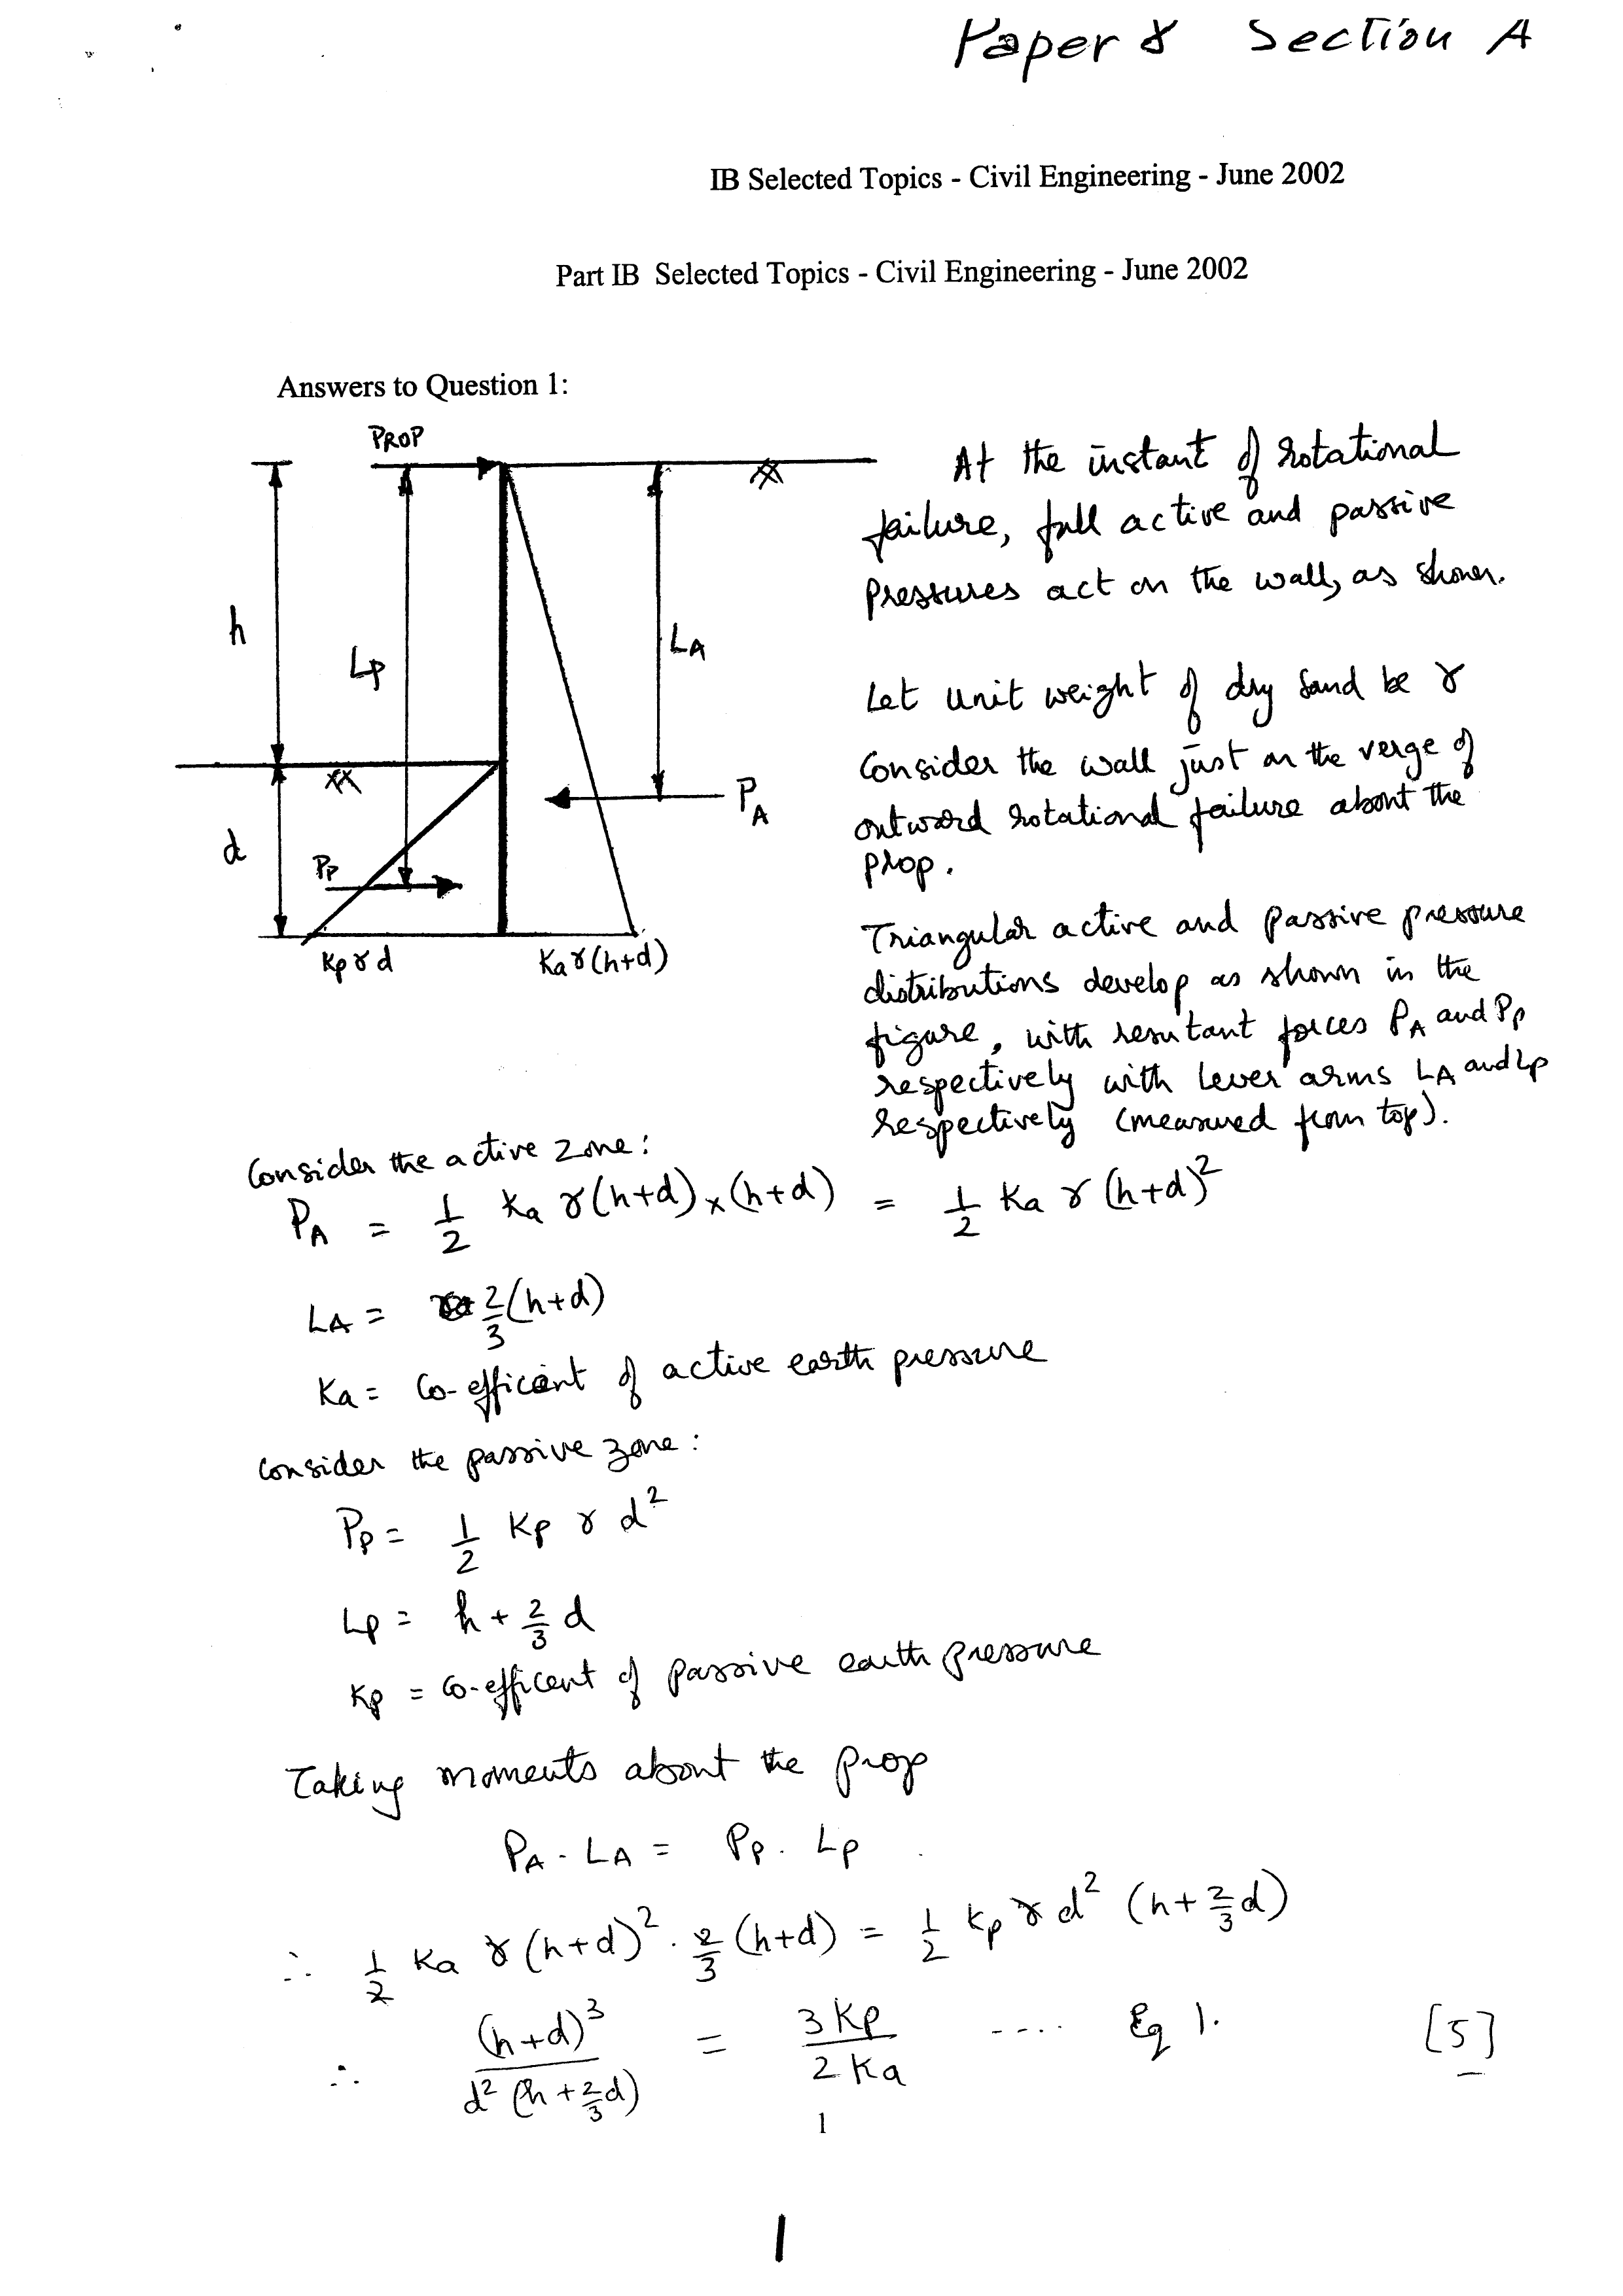 Paper 8 Section A
IB Selected Topics - Civil Engineering - June 2002
Part IB Selected Topics - Civil Engineering - June 2002
Answers to Question 1:
PROP
h
Lp
LA
PA
d
Pp
Kp γ d
Ka γ (h+d)
At the instant of rotational
failure, full active and passive
pressures act on the wall, as shown.
Let unit weight of dry sand be γ
Consider the wall just on the verge of
outward rotational failure about the
prop.
Triangular active and passive pressure
distributions develop as shown in the
figure, with resutant forces PA and Pp
respectively with lever arms LA and Lp
respectively (measured from top).
Consider the active zone:
PA = 1/2 Ka γ (h+d) x (h+d) = 1/2 Ka γ (h+d)²
LA = 2/3 (h+d)
Ka = Co-efficient of active earth pressure
Consider the passive zone:
Pp = 1/2 Kp γ d²
Lp = h + 2/3 d
Kp = Co-efficent of passive earth pressure
Taking moments about the prop
PA . LA = Pp . Lp
∴ 1/2 Ka γ (h+d)² . 2/3 (h+d) = 1/2 Kp γ d² (h + 2/3 d)
∴ (h+d)³ / d² (h + 2/3 d) = 3 Kp / 2 Ka .... Eq 1. [5]
1
1